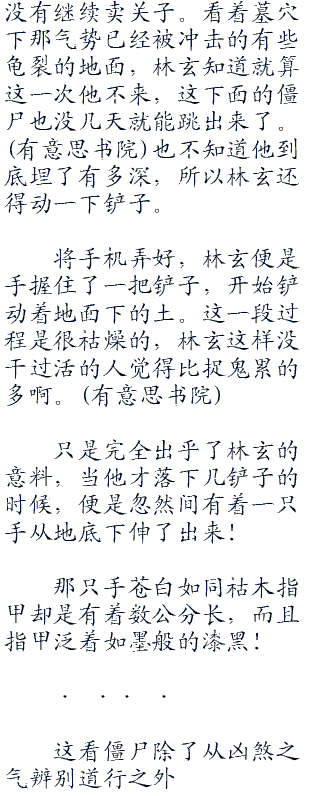 没有继续卖关子。看着墓穴
下那气势已经被冲击的有些
龟裂的地面，林玄知道就算
这一次他不来，这下面的僵
尸也没几天就能跳出来了。
(有意思书院)也不知道他到
底埋了有多深，所以林玄还
得动一下铲子。
将手机弄好，林玄便是
手握住了一把铲子，开始铲
动着地面下的土。这一段过
程是很祜燥的，林玄这样没
干过活的人觉得比捉鬼累的
多啊。(有意思书院)
只是完全出乎了林玄的
意料，当他才落下几铲子的
时候，便是忽然间有着一只
手从地底下伸了出来！
那只手苍白如同祜木指
甲却是有着数公分长，而且
指甲泛着如墨般的漆黑！
· · · ·
这看僵尸除了从凶煞之
气辨别道行之外